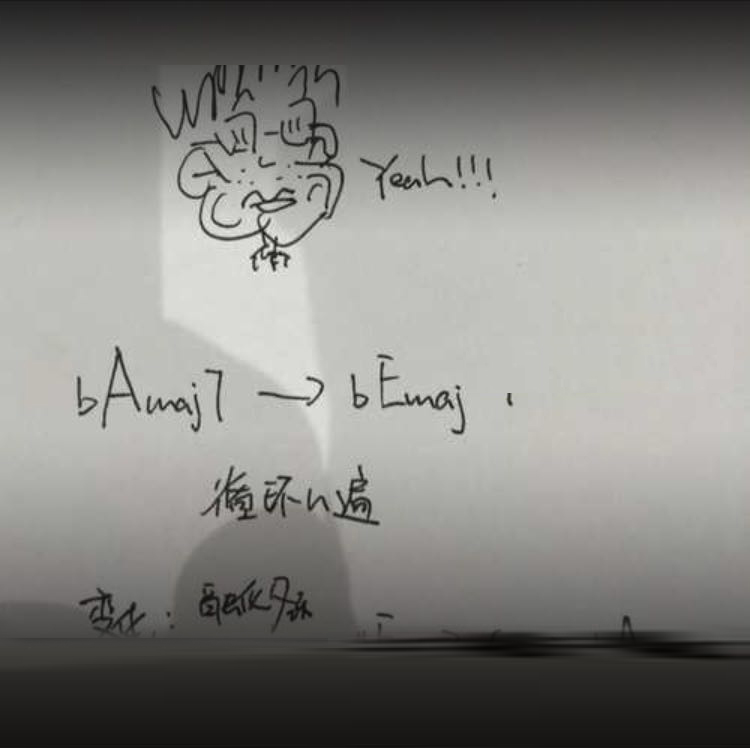 Yeah!!!
bAmaj7 → bEmaj
循环n遍
变化: